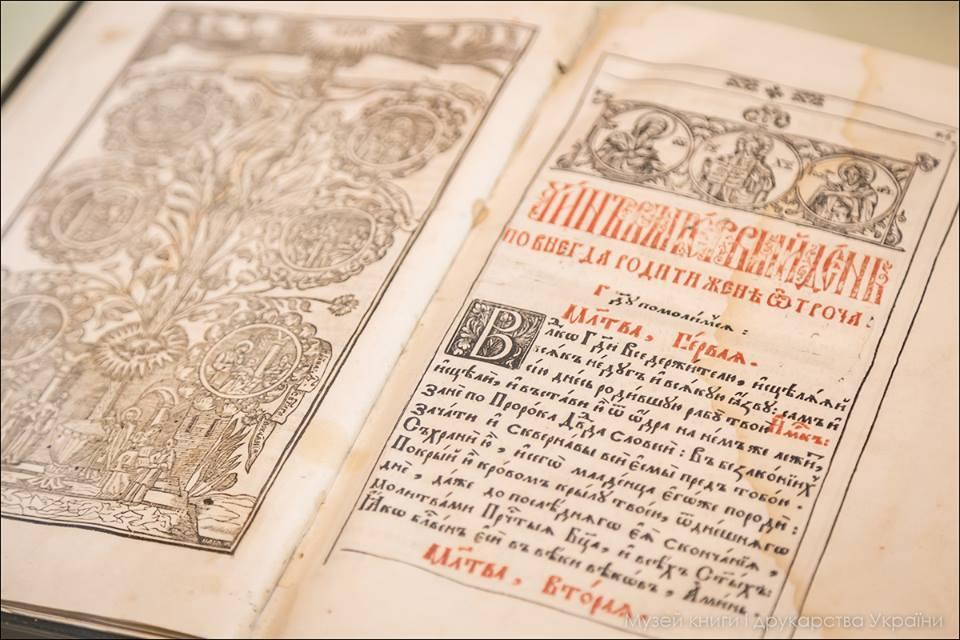 МЛ҃ТВЫ В҃ ПЕРВЫЙ ДЕНЬ
ПО ВНЕГДА РОДИТИ ЖЕНѢ Ѿ ТРОЧА:
Г҃ДУ ПОМОЛИМСѦ:
Мл҃тва, Пе́рваѧ.
Влⷣко Гдⷭ҇и Вседержителю, исцѣлѧѧй
всѧкъ недугъ и всѧкую ꙗзву: самъ и
сїю днесь родившую рабу твою И҆мк҃ъ:
исцѣли, и въстави ю҆ ѿ ѻдра на немъ же лежи,
Занѐ по Пророка Дв҃да Словеси: Въ беззаконїиⷯ
зачати и Скверна вси Е҆смы предъ тобою.
Съхрани ю҆, и сего младенца егоже породи:
Покрый ю҆ кровомъ крылу твоею, ѿ днешнѧгѡ
днѐ, даже до послѣднѧгѡ еѧ̀ Скончанїѧ,
Молитвами Прчⷭ҇тыѧ Бц҃а, и всѣхъ Ст҃ыхъ:
Ꙗ҆кѡ бл҃венъ Е҆си въ вѣки вѣкѡвъ, А҆минь.
Мл҃тва, Втора́ѧ.
Музей книги і друкарства України